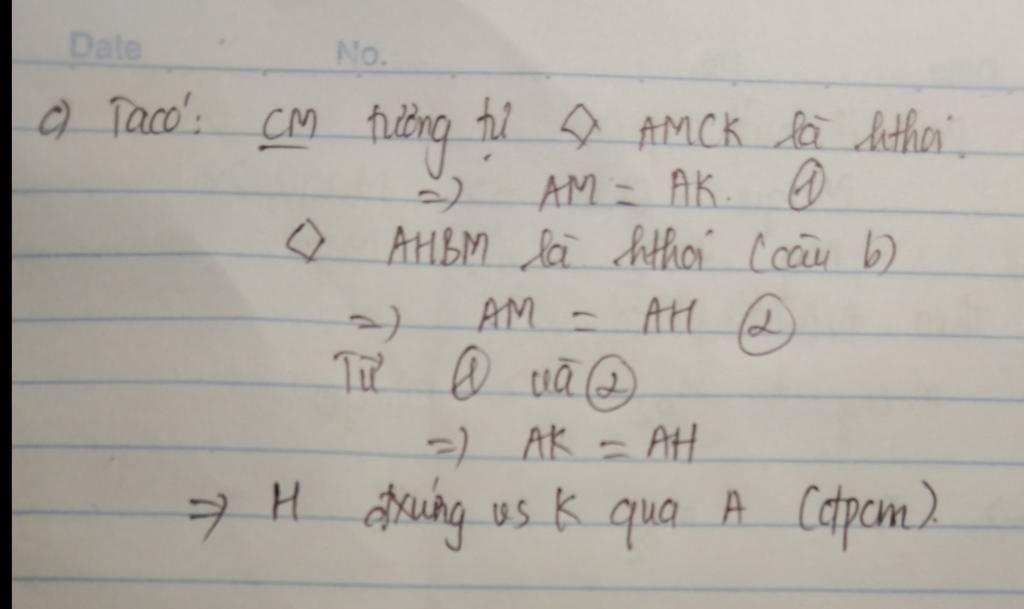 Date No.
c) Ta có: CM tương tự ◇ AMCK là hthoi.
=) AM = AK. ①
◇ AHBM là hthoi (câu b)
=) AM = AH ②
Từ ① và ②
=) AK = AH
=> H đxứng vs K qua A (đpcm).